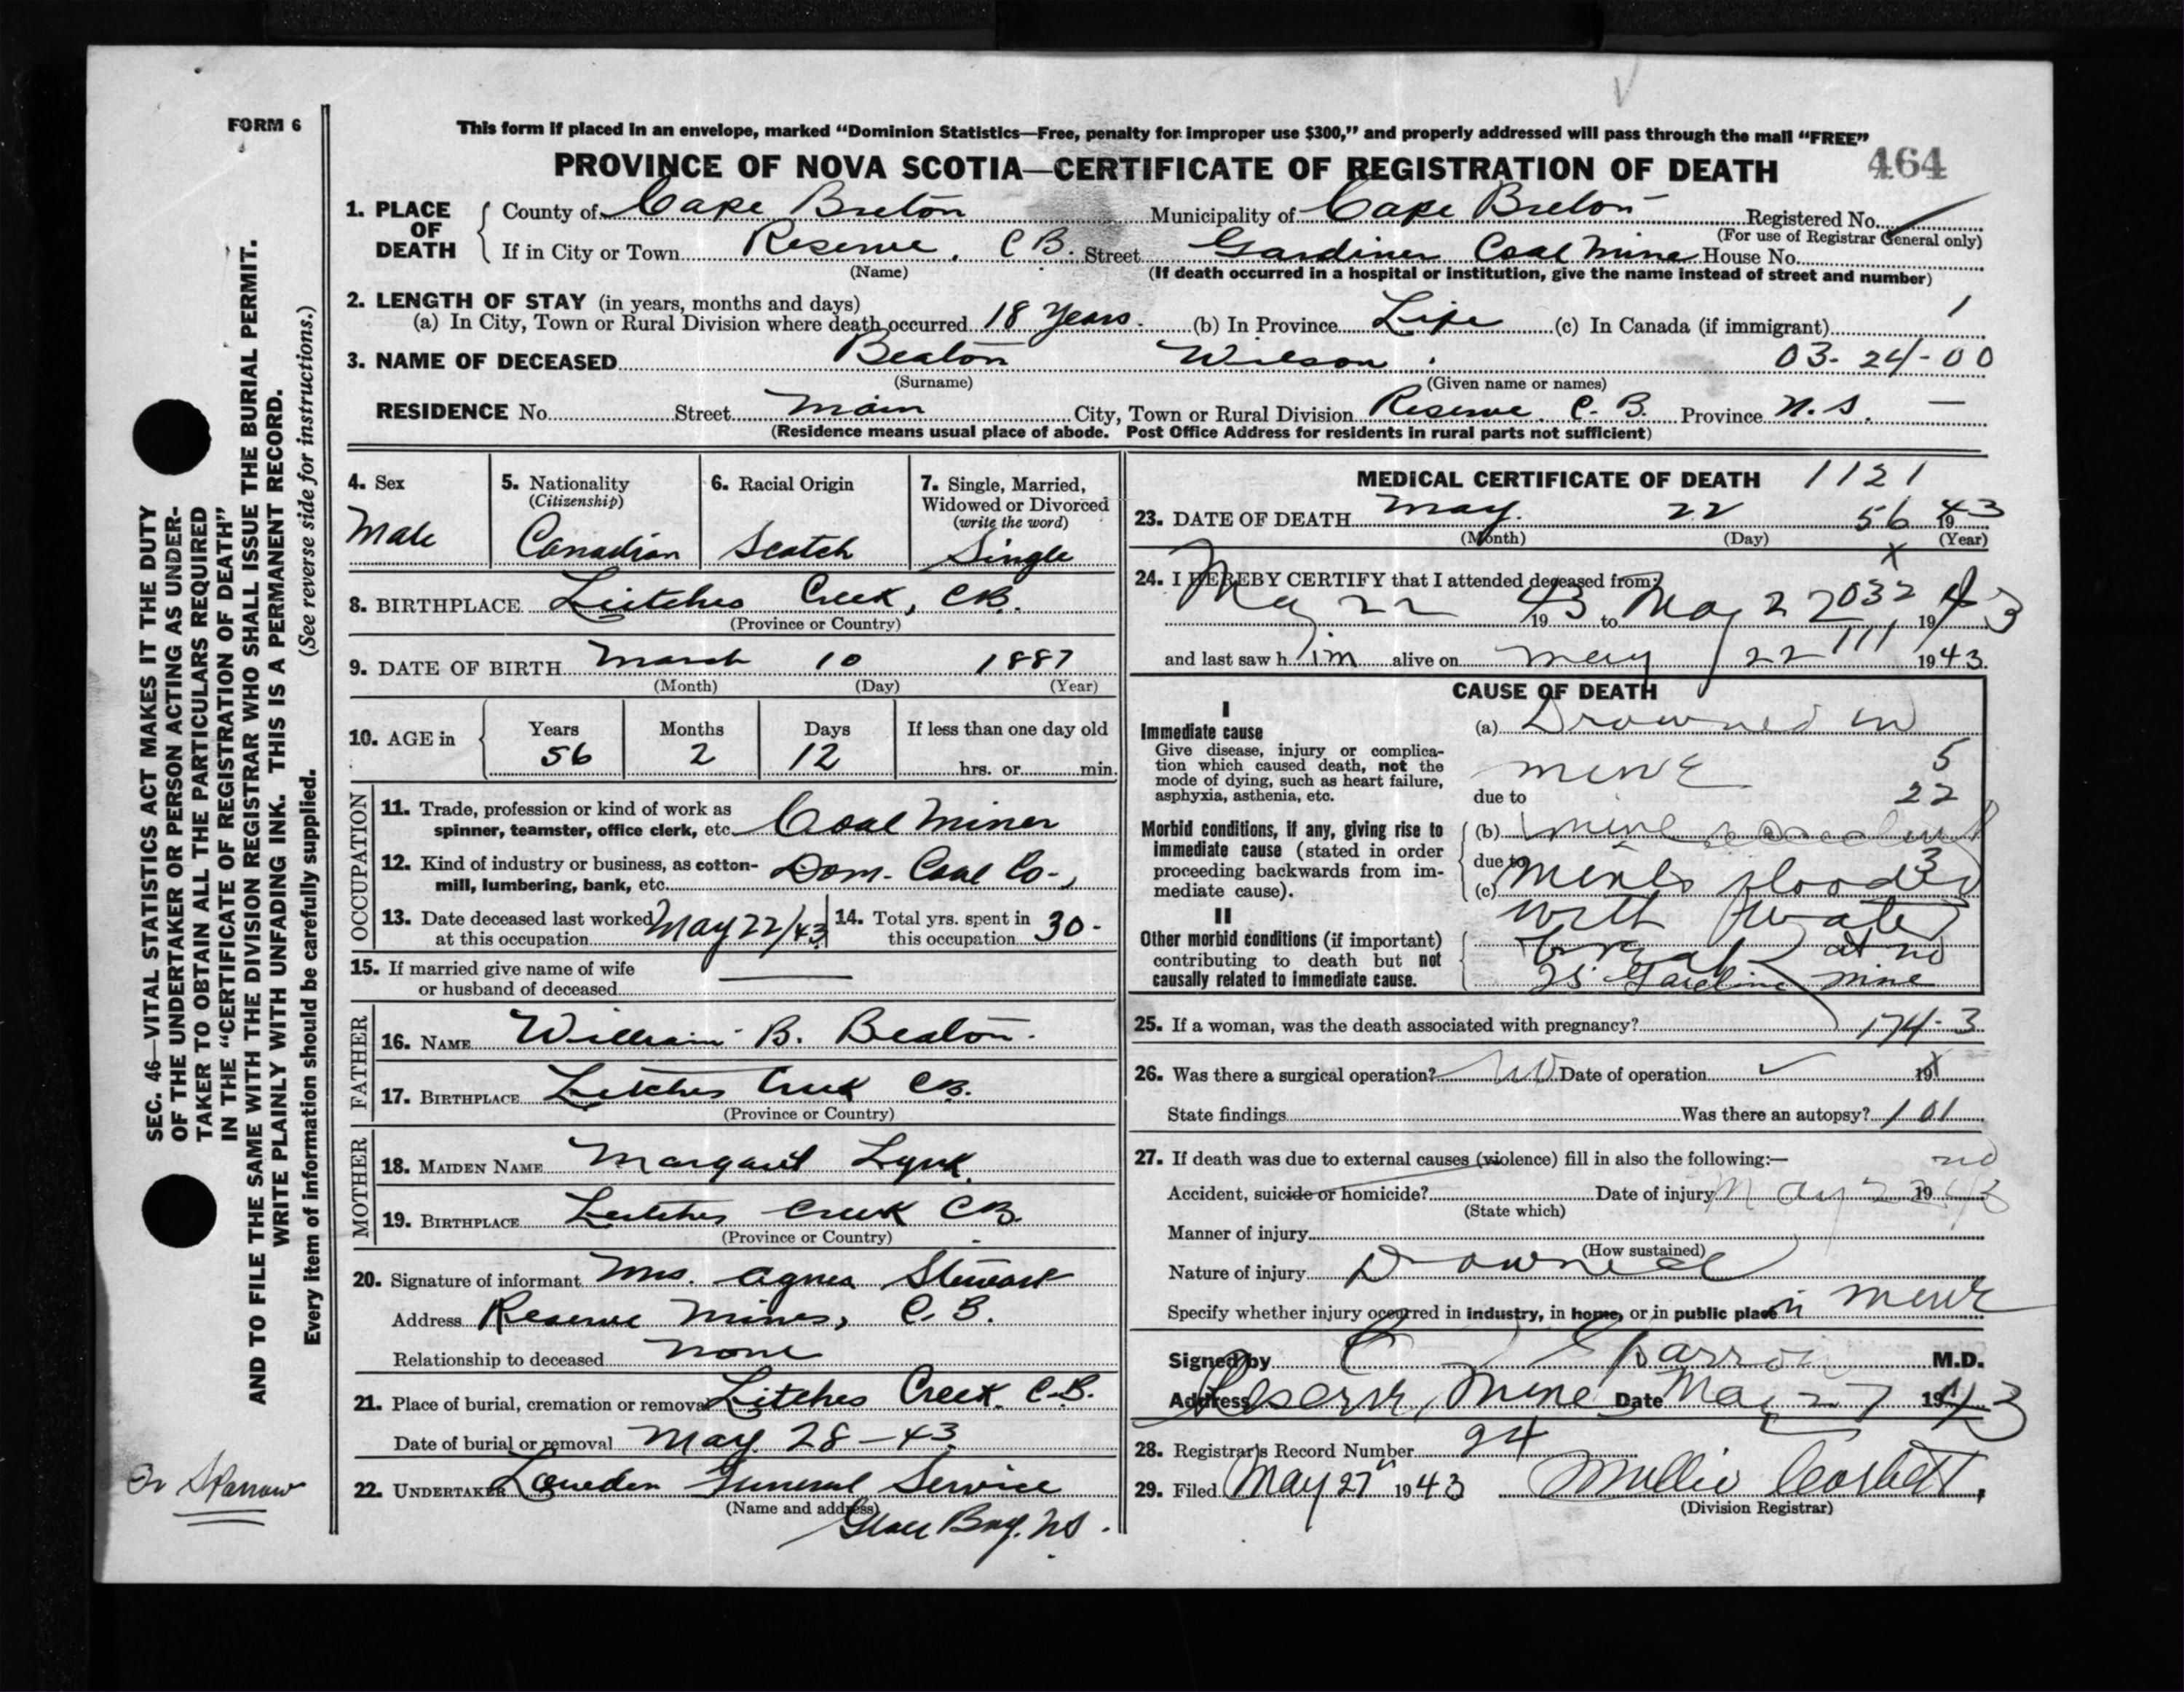 FORM 6
This form if placed in an envelope, marked "Dominion Statistics—Free, penalty for improper use $300," and properly addressed will pass through the mail "FREE"
PROVINCE OF NOVA SCOTIA—CERTIFICATE OF REGISTRATION OF DEATH 464
1. PLACE OF DEATH
County of Cape Breton Municipality of Cape Breton Registered No.
(For use of Registrar General only)
If in City or Town Reserve, C B. Street Gardiner Coal Mine House No.
(Name) (If death occurred in a hospital or institution, give the name instead of street and number)
2. LENGTH OF STAY (in years, months and days)
(a) In City, Town or Rural Division where death occurred 18 Years. (b) In Province Life (c) In Canada (if immigrant) 1
3. NAME OF DECEASED Beaton Wilson 03-24-00
(Surname) (Given name or names)
RESIDENCE No. Street Main City, Town or Rural Division Reserve, C. B. Province N.S. —
(Residence means usual place of abode. Post Office Address for residents in rural parts not sufficient)
4. Sex
Male
5. Nationality
(Citizenship)
Canadian
6. Racial Origin
Scotch
7. Single, Married,
Widowed or Divorced
(write the word)
Single
8. BIRTHPLACE Leitches Creek, CB.
(Province or Country)
9. DATE OF BIRTH March 10 1887
(Month) (Day) (Year)
10. AGE in
Years Months Days If less than one day old
56 2 12 hrs. or min.
OCCUPATION
11. Trade, profession or kind of work as
spinner, teamster, office clerk, etc. Coal Miner
12. Kind of industry or business, as cotton-
mill, lumbering, bank, etc. Dom. Coal Co.,
13. Date deceased last worked
at this occupation May 22/43
14. Total yrs. spent in
this occupation 30-
15. If married give name of wife
or husband of deceased ——
FATHER
16. NAME William B. Beaton.
17. BIRTHPLACE Leitches Creek CB.
(Province or Country)
MOTHER
18. MAIDEN NAME Margaret Lynk.
19. BIRTHPLACE Leitches Creek CB.
(Province or Country)
20. Signature of informant Mrs. Agnes Stewart
Address Reserve Mines, C. B.
Relationship to deceased None
21. Place of burial, cremation or removal Litches Creek. C.B.
Date of burial or removal May. 28-43.
22. UNDERTAKER Funeral Service
(Name and address)
Glace Bay. NS.
MEDICAL CERTIFICATE OF DEATH 1121
23. DATE OF DEATH May. 22 56 1943
(Month) (Day) (Year)
x
24. I HEREBY CERTIFY that I attended deceased from:
May 22 1943 to May 22 032 1943
and last saw h im alive on May 22 111 1943.
CAUSE OF DEATH
I
Immediate cause
Give disease, injury or complica-
tion which caused death, not the
mode of dying, such as heart failure,
asphyxia, asthenia, etc.
(a) Drowned in
mine 5
due to 22
Morbid conditions, if any, giving rise to
immediate cause (stated in order
proceeding backwards from im-
mediate cause).
(b) mine accident
due to 3
(c) Mines flooded
with water
II
Other morbid conditions (if important)
contributing to death but not
causally related to immediate cause.
break at no
25 Gardiner mine
25. If a woman, was the death associated with pregnancy? 174-3
26. Was there a surgical operation? No Date of operation ✓ 19x
State findings Was there an autopsy? 101
no
27. If death was due to external causes (violence) fill in also the following:—
Accident, suicide or homicide? Date of injury May 22 1943
(State which)
Manner of injury
(How sustained)
Nature of injury Drowned
Specify whether injury occurred in industry, in home, or in public place in mine
Signed by Sparrow M.D.
Address Reserve, Mines Date May 27 1943
28. Registrar's Record Number 24
29. Filed May 27 1943 Mollie Corbett,
(Division Registrar)
SEC. 46—VITAL STATISTICS ACT MAKES IT THE DUTY
OF THE UNDERTAKER OR PERSON ACTING AS UNDER-
TAKER TO OBTAIN ALL THE PARTICULARS REQUIRED
IN THE "CERTIFICATE OF REGISTRATION OF DEATH"
AND TO FILE THE SAME WITH THE DIVISION REGISTRAR WHO SHALL ISSUE THE BURIAL PERMIT.
WRITE PLAINLY WITH UNFADING INK. THIS IS A PERMANENT RECORD.
Every item of information should be carefully supplied. (See reverse side for instructions.)
Dr Sparrow